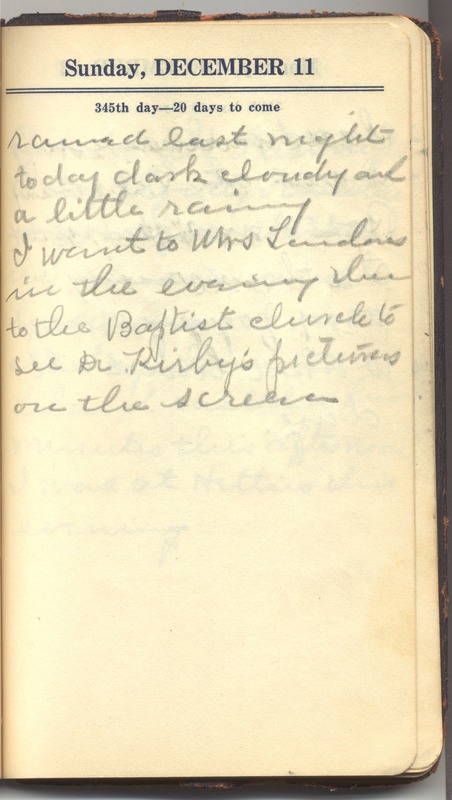 Sunday, DECEMBER 11
345th day—20 days to come
rained last night
today dark cloudy and
a little rainy
I went to Mrs
in the evening then
to the Baptist church to
see Dr Kirby's pictures
on the screen
minutes this afternoon
I was at Hetties this
evening